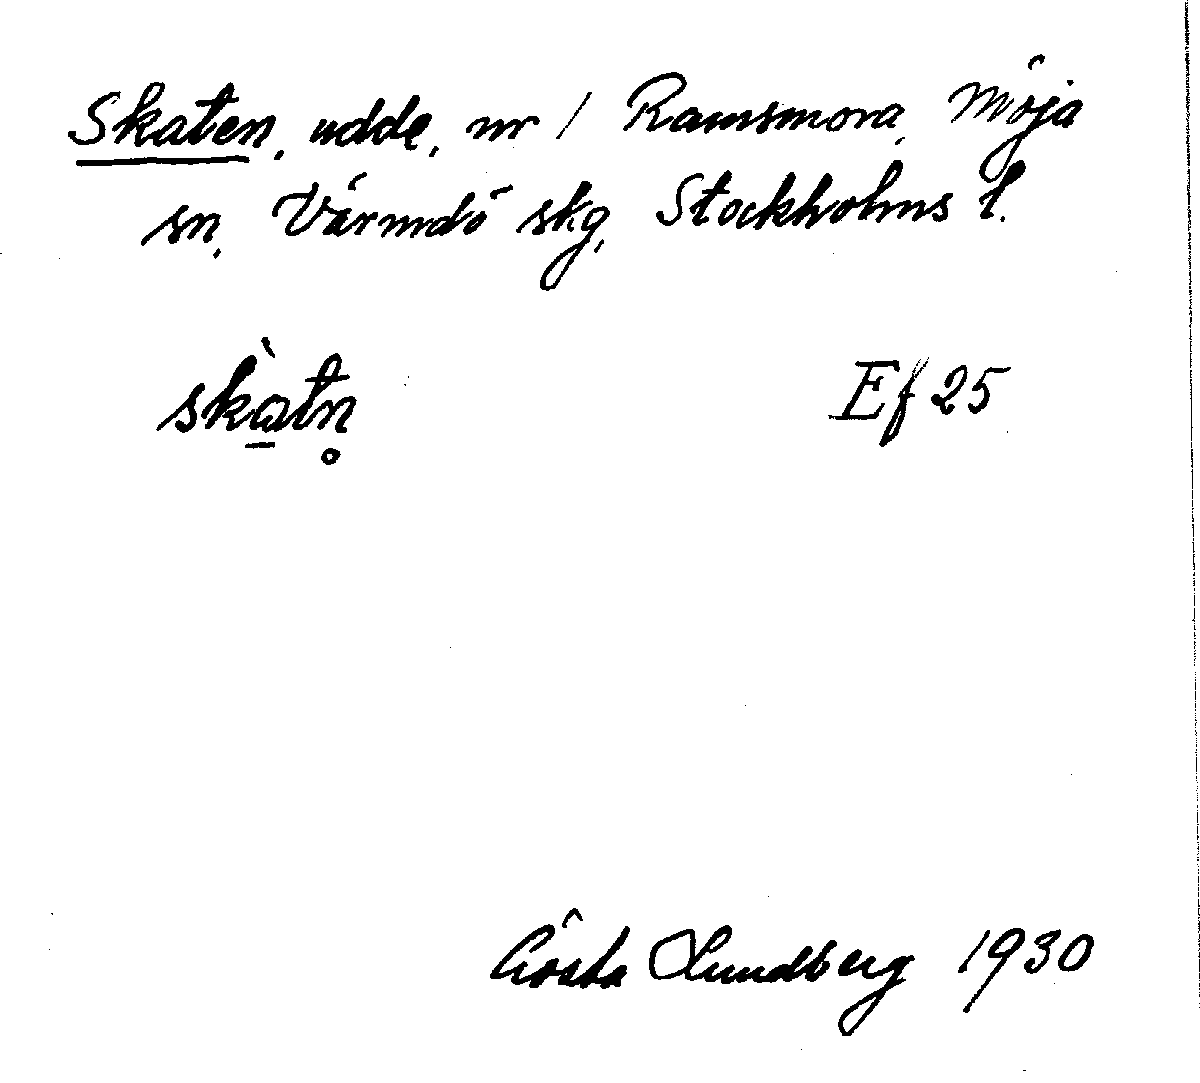 Skaten, udde, nr 1 Ramsmora, Möja
sn, Värmdö skg, Stockholms l.
skàtn̥ Ef 25
Gösta Lundberg 1930